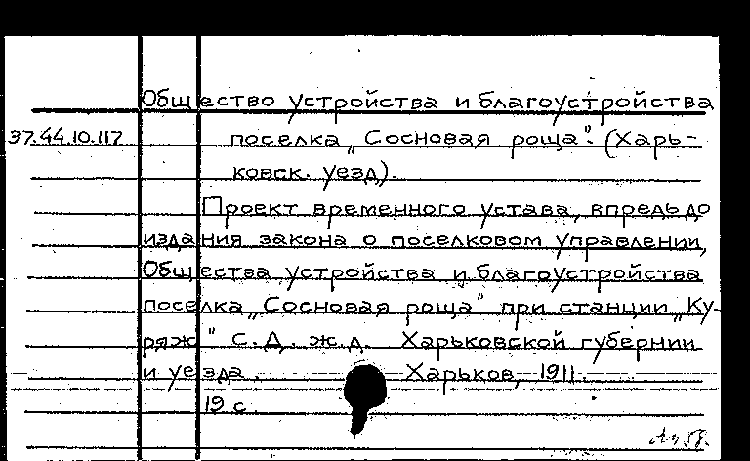 Общество устройства и благоустройства
37.44.10.117 поселка „Сосновая роща". (Харь-
ковск. уезд).
Проект временного устава, впредь до
издания закона о поселковом управлении,
Общества устройства и благоустройства
поселка „Сосновая роща" при станции „Ку-
ряж" С.Д. ж.д. Харьковской губернии
и уезда. Харьков, 1911.
19 с.